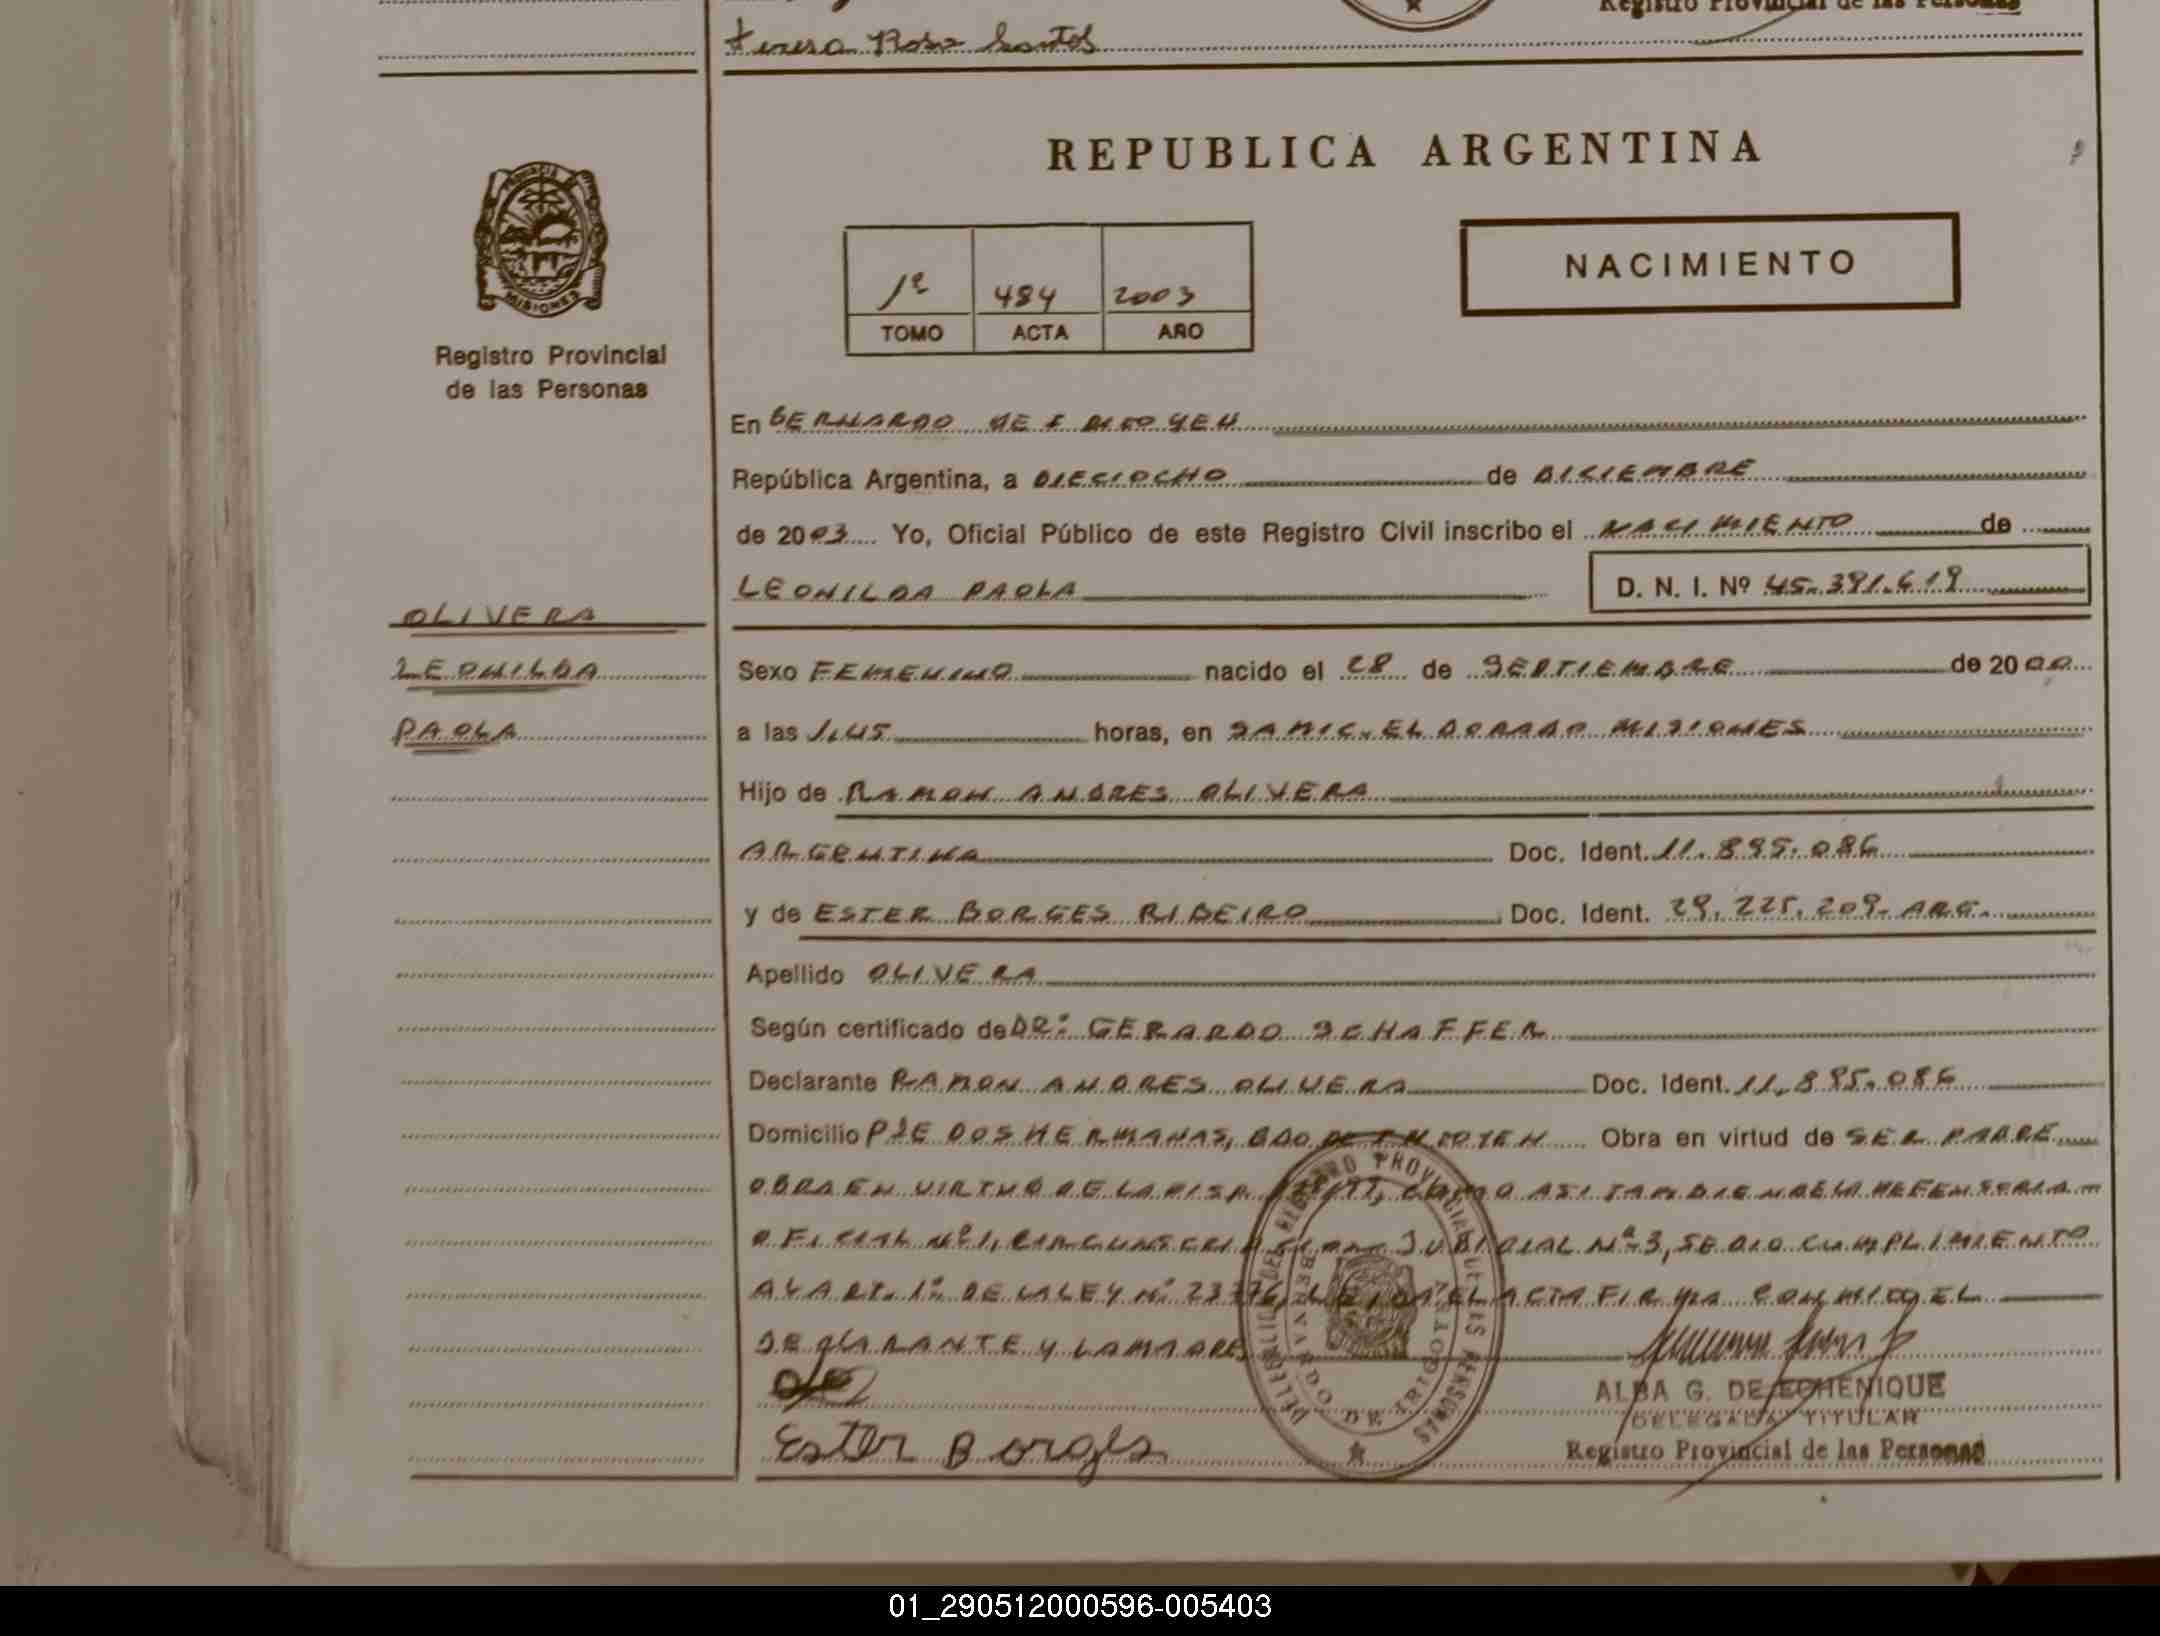 Teresa Rosa Santos
Registro Provincial de las Personas
REPUBLICA ARGENTINA
PROVINCIA
MISIONES
Registro Provincial
de las Personas
1º 484 2003
TOMO ACTA AÑO
NACIMIENTO
En BERNARDO DE IRIGOYEN
República Argentina, a DIECIOCHO de DICIEMBRE
de 2003 Yo, Oficial Público de este Registro Civil inscribo el NACIMIENTO de
LEONILDA PAOLA D. N. I. Nº 45.391.619
OLIVERA
LEONILDA
PAOLA
Sexo FEMENINO nacido el 28 de SEPTIEMBRE de 2000
a las 1.45 horas, en SAMIC. ELDORADO MISIONES
Hijo de RAMON ANDRES OLIVERA
ARGENTINA Doc. Ident. 11.895.086
y de ESTER BORGES RIBEIRO Doc. Ident. 29.225.209. ARG.
Apellido OLIVERA
Según certificado de DR: GERARDO SCHAFFER
Declarante RAMON ANDRES OLIVERA Doc. Ident. 11.895.086
Domicilio PJE DOS HERMANAS, BDO DE IRIGOYEN Obra en virtud de SER PADRE
OBRA EN VIRTUD DE LA DISP. COMO ASI TAMBIEN DE LA DEFENSORIA
OFICIAL Nº 1, CIRCUNSCRIPCION JUDICIAL Nº 3, SE DIO CUMPLIMIENTO
AL ART. 1º DE LA LEY Nº 23776, LEIDA EL ACTA FIRMA CONMIGO EL
DECLARANTE Y LA MADRE
Ester Borges
DELEGACION DEL REGISTRO PROVINCIAL DE LAS PERSONAS
BERNARDO DE IRIGOYEN
ALBA G. DE ECHENIQUE
DELEGADA TITULAR
Registro Provincial de las Personas
01_290512000596-005403